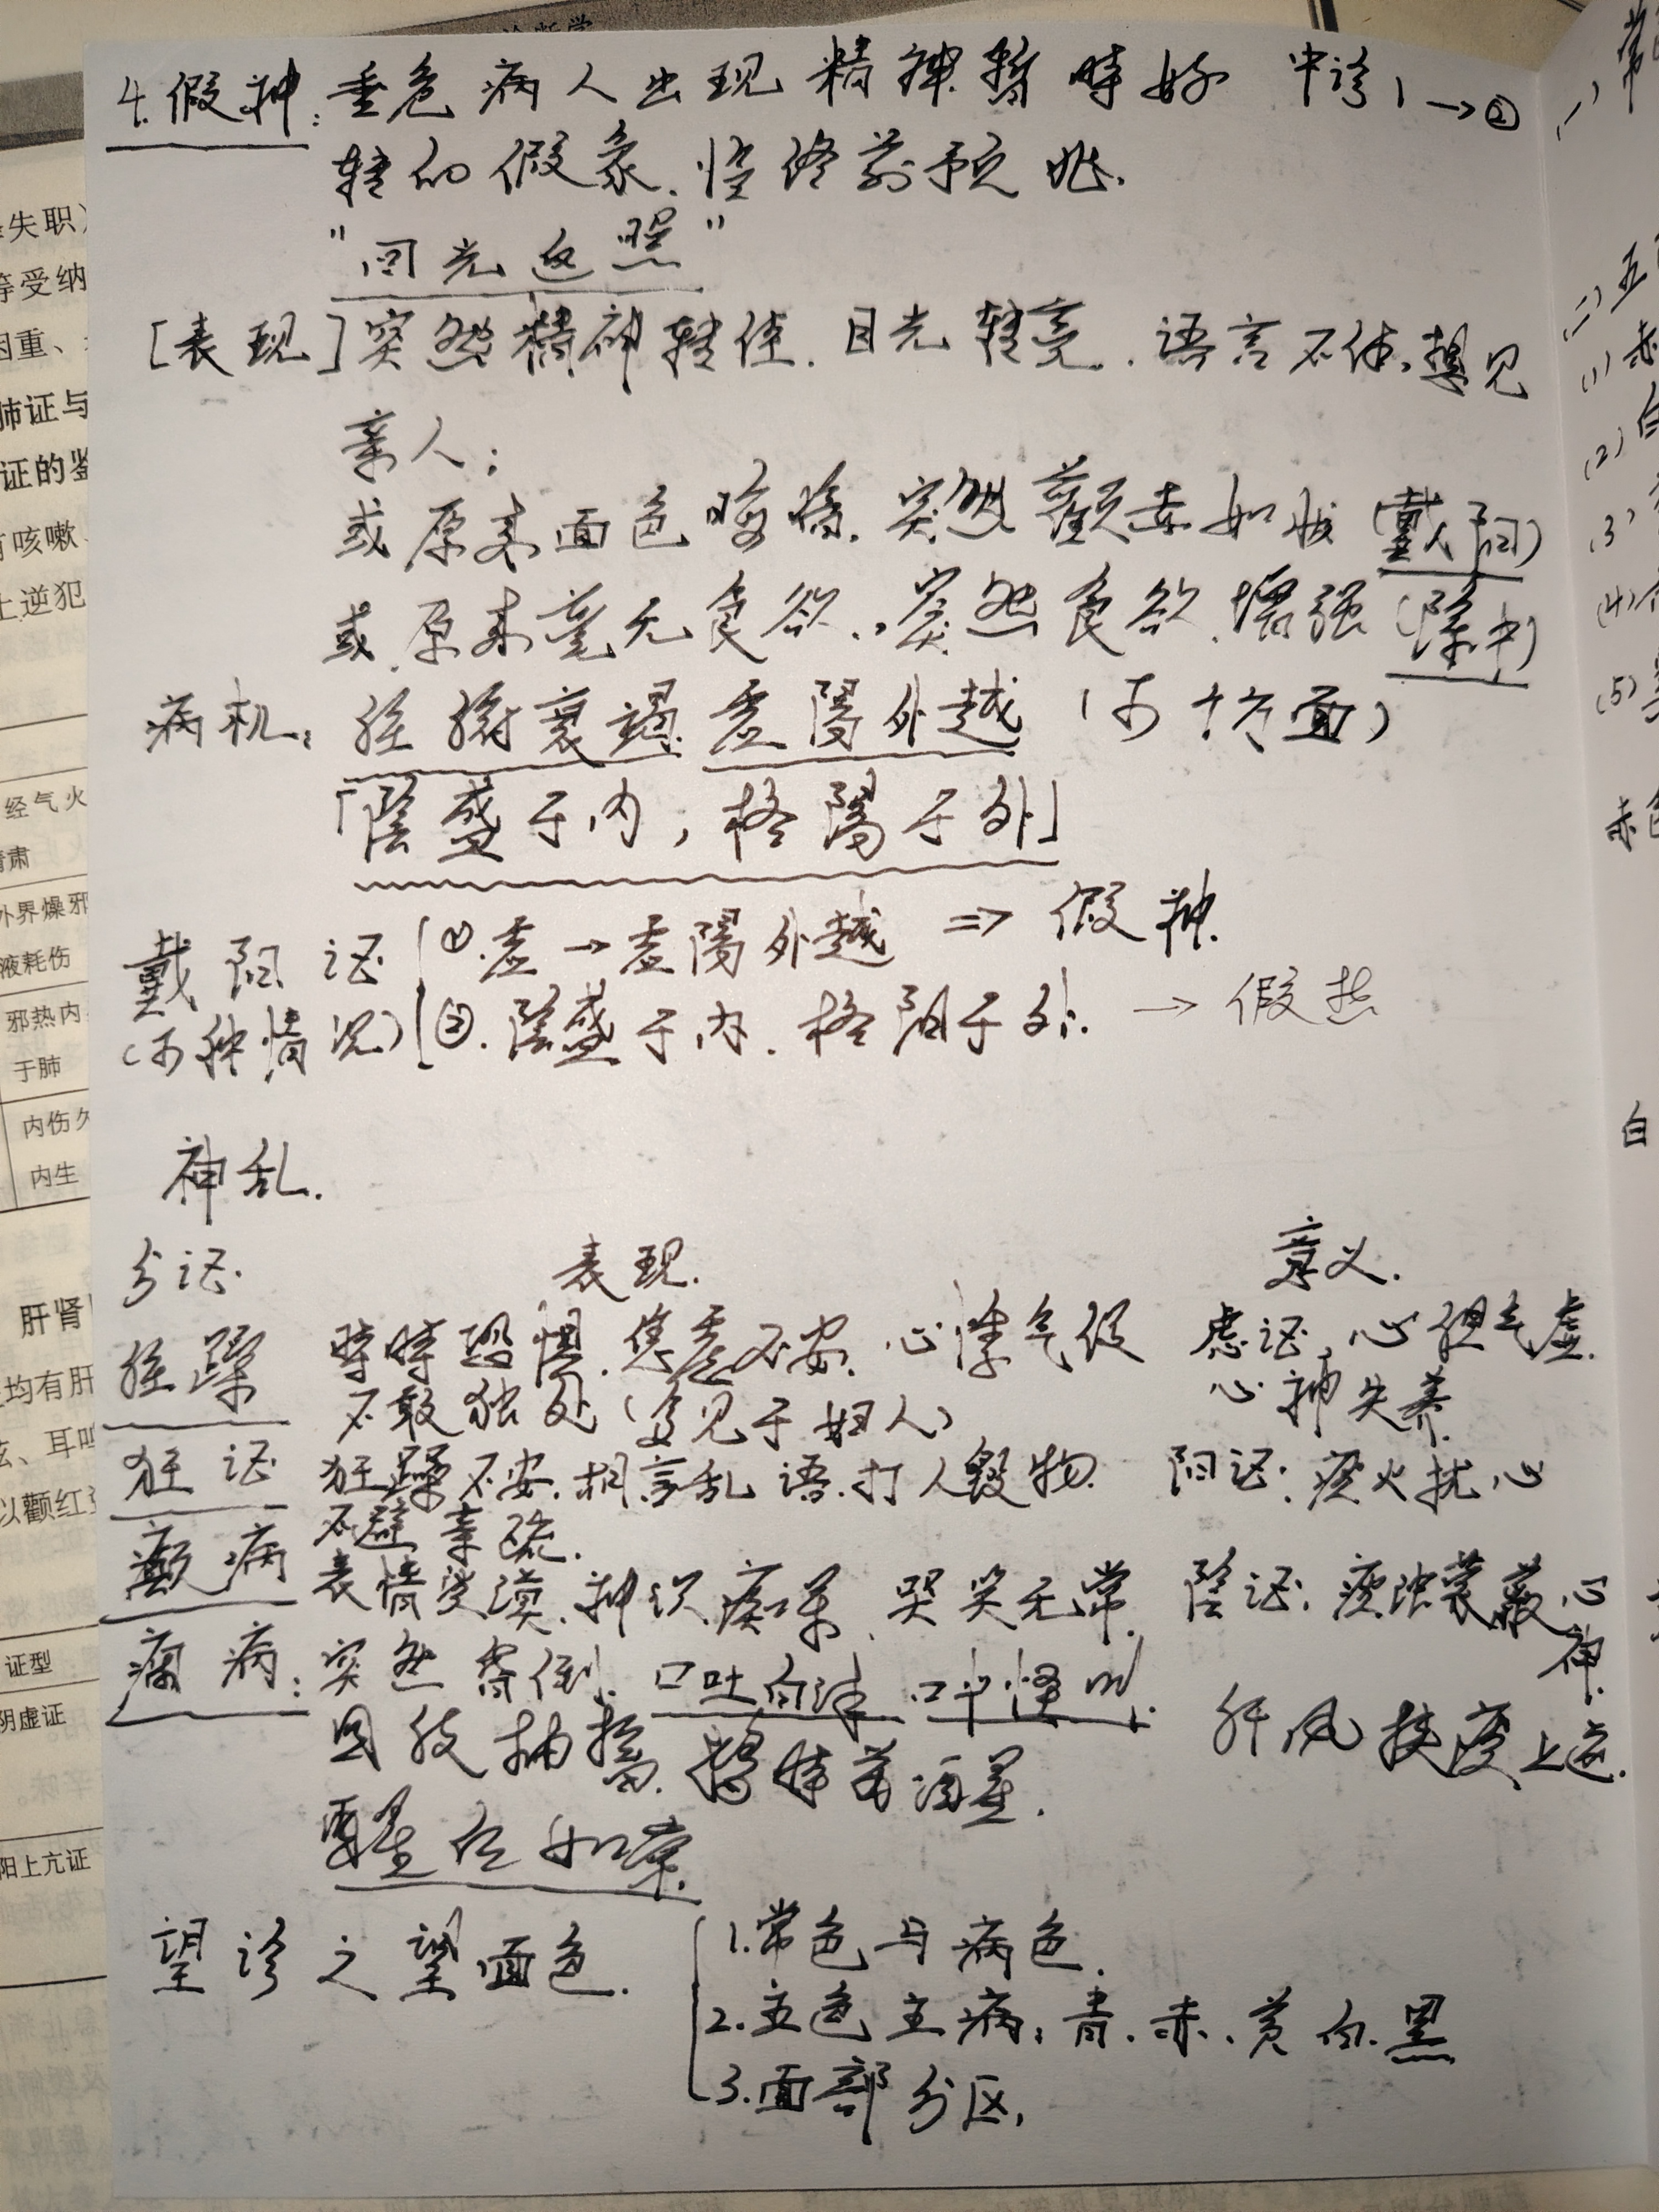 4.假神：垂危病人出现精神暂时好 中诊1→②
转的假象.临终前预兆.
"回光返照"
[表现]突然精神转佳.目光转亮.语言不休,想见
亲人；
或原来面色晦暗.突然颧赤如妆(戴阳)
或原来毫无食欲.突然食欲增强(除中)
病机：脏腑衰竭 虚陽外越（两个方面）
「陰盛于内,格陽于外」
戴阳证
（两种情况）
①.虚→虚陽外越 => 假神.
②.陰盛于内.格阳于外.→假热
神乱.
分证. 表现. 意义.
脏躁 時時恐惧.焦虑不安.心悸气促 虚证,心胆气虚.
不敢独处(多见于妇人) 心神失养.
狂证 狂躁不安.胡言乱语.打人毁物. 阳证：痰火扰心
不避亲疏.
癫病 表情淡漠.神识痴呆.哭笑无常. 陰证：痰浊蒙蔽心神.
痫病：突然昏倒.口吐白沫 口中怪叫.
四肢抽搐. 肝风挟痰上逆.
醒后如常.
望诊之望面色.
1.常色与病色.
2.五色主病：青.赤.黄.白.黑
3.面部分区.
失职）
等受纳
困重、
肺证与
证的鉴
有咳嗽、
上逆犯
经气火
外界燥邪
液耗伤
邪热内
于肺
内伤久
内生
肝肾
均有肝
以颧红
证型
阴虚证
阳上亢证
(二)五
(1)赤
(2)白
(3)
(4)
(5)
赤色
白